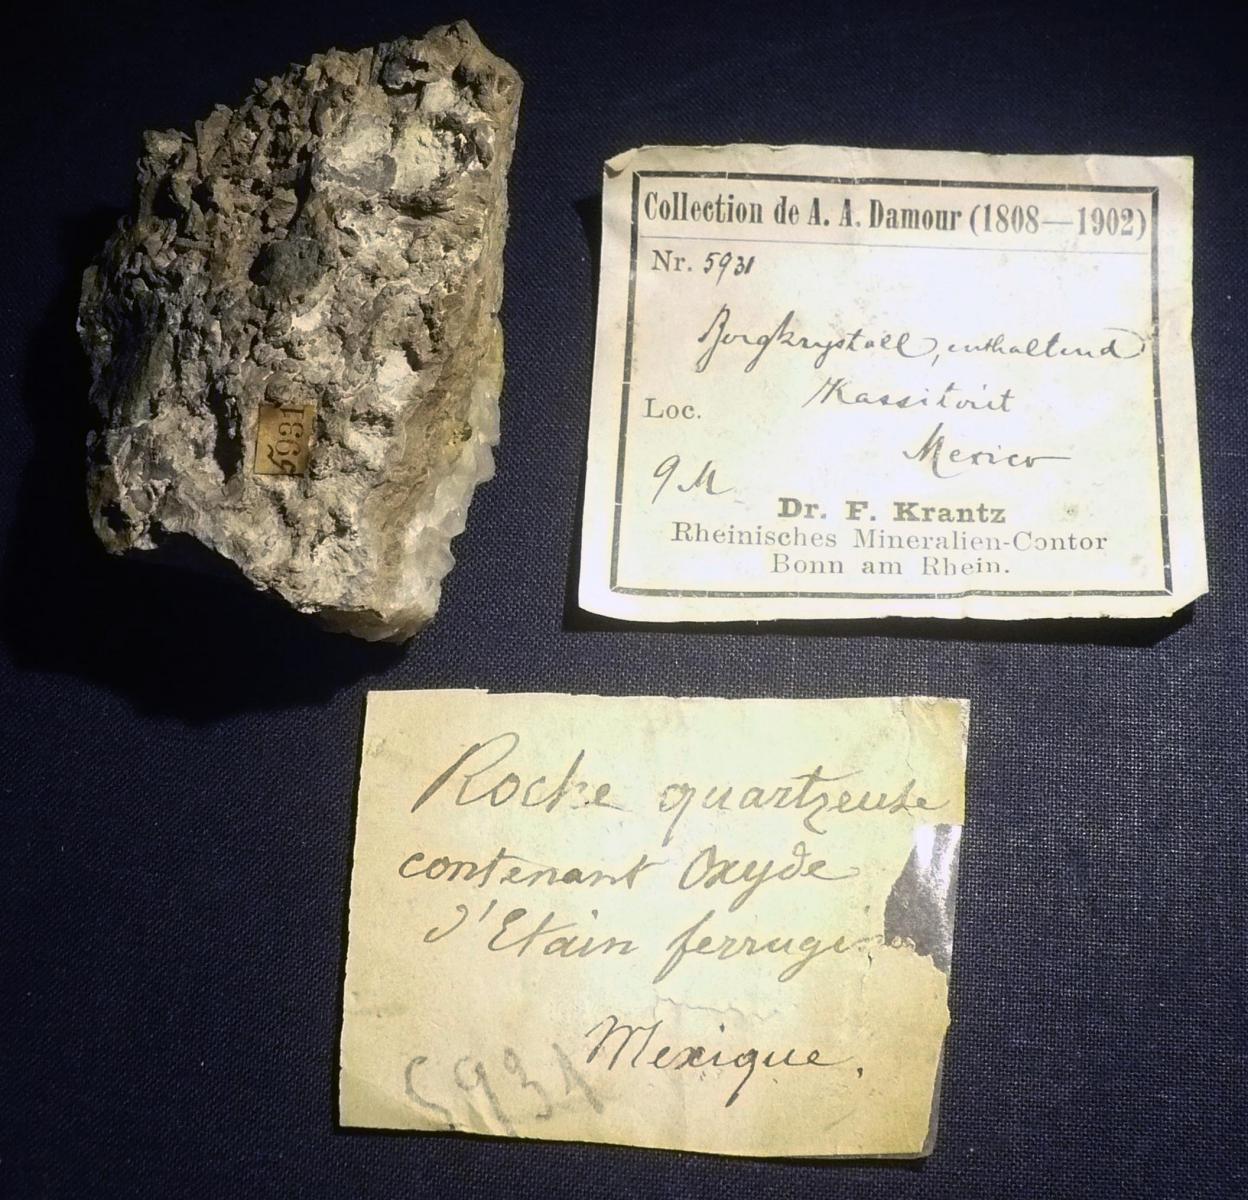 5931
Collection de A. A. Damour (1808—1902)
Nr. 5931
Bergkrystall, enthaltend
Kassiterit
Loc.
Mexico
9 M
Dr. F. Krantz
Rheinisches Mineralien-Contor
Bonn am Rhein.
Roche quartzeuse
contenant Oxyde
d'Etain ferrugi
Mexique.
5931